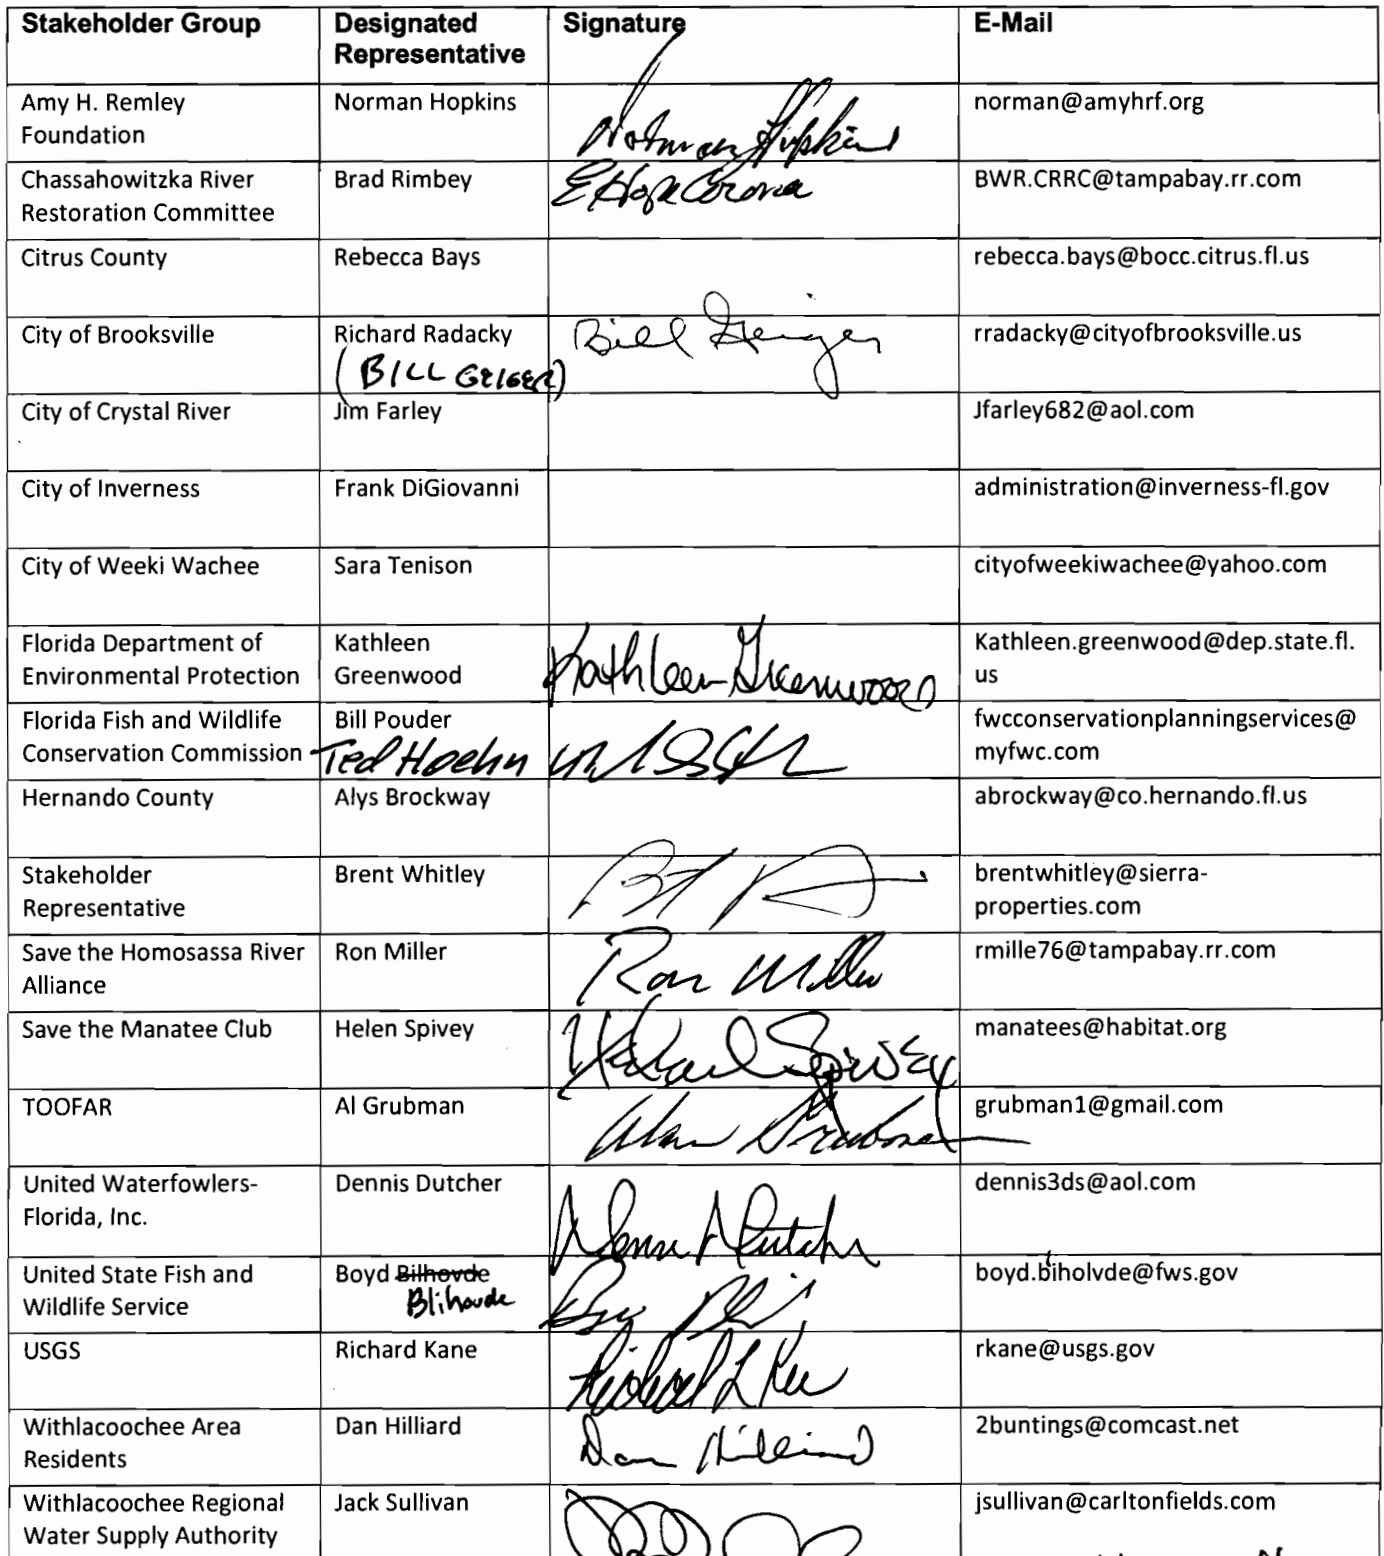 Stakeholder Group Designated Representative Signature E-Mail
Amy H. Remley Foundation Norman Hopkins Norman Hopkins norman@amyhrf.org
Chassahowitzka River Restoration Committee Brad Rimbey BWR.CRRC@tampabay.rr.com
Citrus County Rebecca Bays rebecca.bays@bocc.citrus.fl.us
City of Brooksville Richard Radacky (BILL GEIGER) Bill Geiger rradacky@cityofbrooksville.us
City of Crystal River Jim Farley Jfarley682@aol.com
City of Inverness Frank DiGiovanni administration@inverness-fl.gov
City of Weeki Wachee Sara Tenison cityofweekiwachee@yahoo.com
Florida Department of Environmental Protection Kathleen Greenwood Kathleen Greenwood Kathleen.greenwood@dep.state.fl.us
Florida Fish and Wildlife Conservation Commission Bill Pouder Ted Hoehn fwcconservationplanningservices@myfwc.com
Hernando County Alys Brockway abrockway@co.hernando.fl.us
Stakeholder Representative Brent Whitley brentwhitley@sierra-properties.com
Save the Homosassa River Alliance Ron Miller Ron Miller rmille76@tampabay.rr.com
Save the Manatee Club Helen Spivey Spivey manatees@habitat.org
TOOFAR Al Grubman Alan Grubman grubman1@gmail.com
United Waterfowlers-Florida, Inc. Dennis Dutcher Dennis Dutcher dennis3ds@aol.com
United State Fish and Wildlife Service Boyd Bilhovde Blihovde boyd.biholvde@fws.gov
USGS Richard Kane Richard L Kane rkane@usgs.gov
Withlacoochee Area Residents Dan Hilliard Dan Hilliard 2buntings@comcast.net
Withlacoochee Regional Water Supply Authority Jack Sullivan jsullivan@carltonfields.com